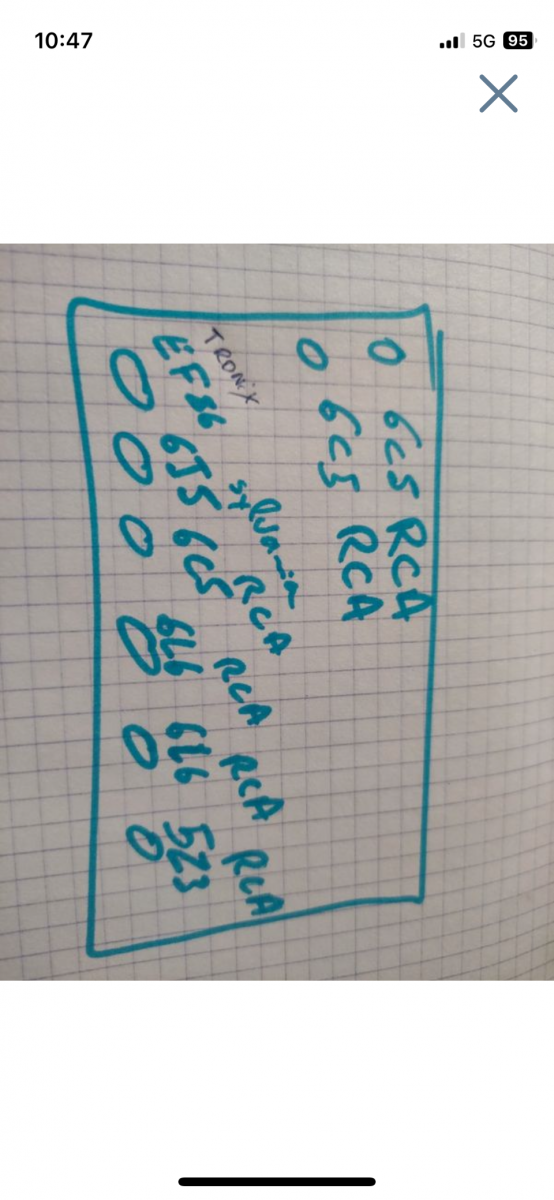 10:47
5G 95
6C5 RCA
6C5 RCA
TRONiX sylvania RCA RCA RCA RCA
EF86 6J5 6C5 6L6 6L6 5Z3